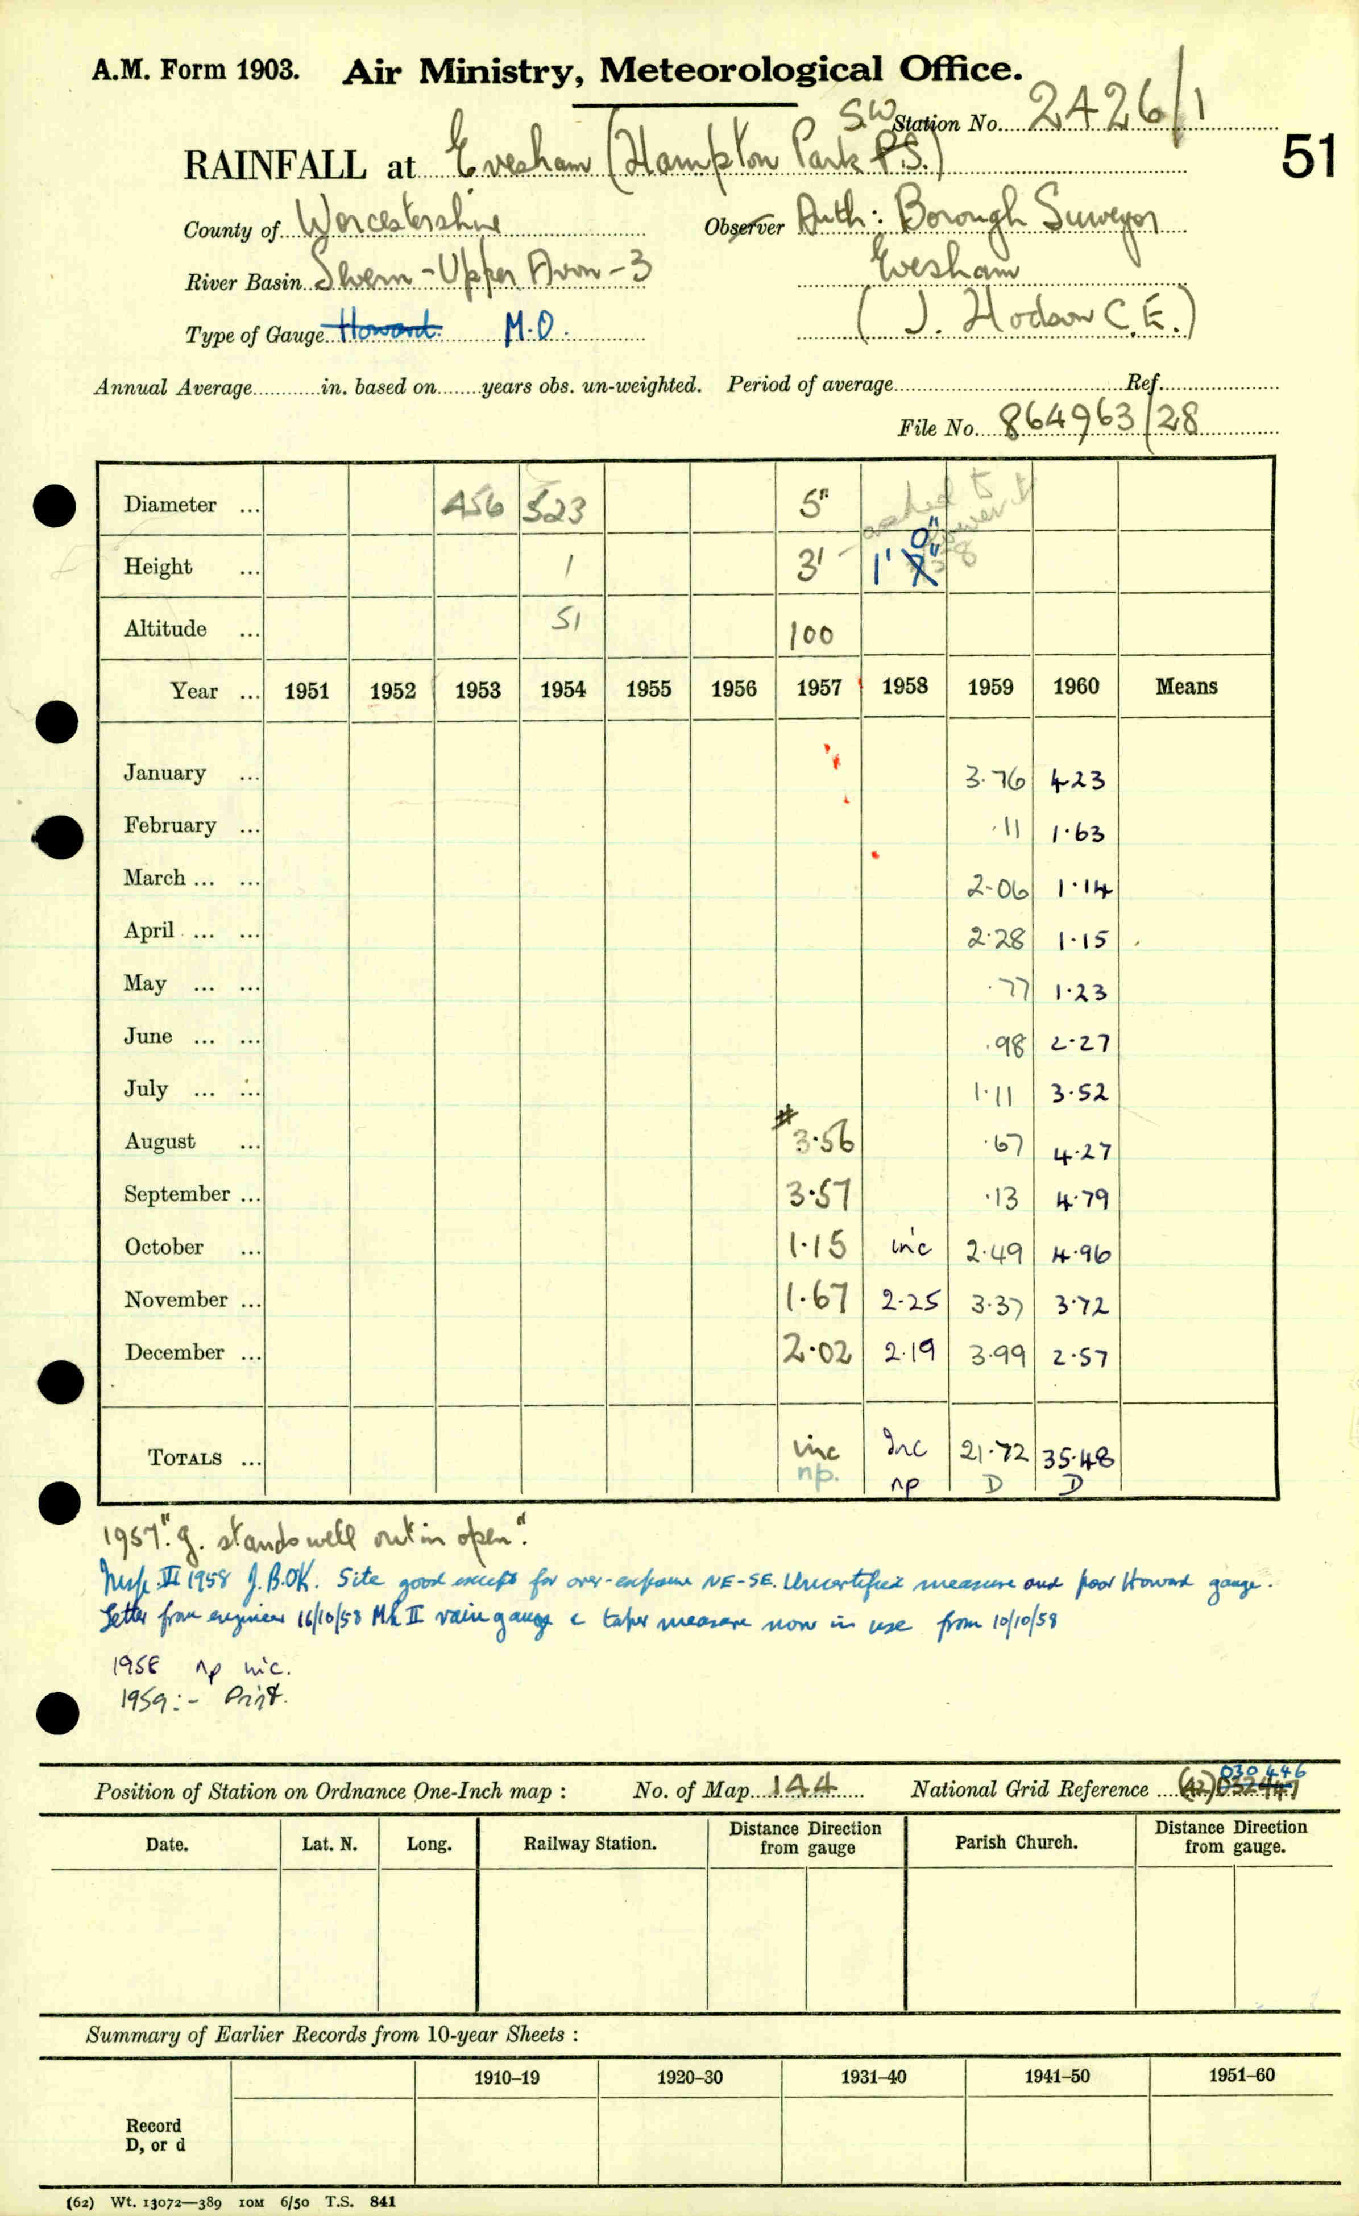 A.M. Form 1903. Air Ministry, Meteorological Office.
Station No. 2426/1
51
RAINFALL at Evesham (Hampton Park P.S.) SW
County of Worcestershire Observer Auth: Borough Surveyor
River Basin Severn - Upper Avon - 3 Evesham
Type of Gauge Howard. M.O. (J. Hodson C.E.)
Annual Average in. based on years obs. un-weighted. Period of average Ref.
File No. 864963/28
Diameter ... 456 523 5" asked to lower it
Height ... 1 3' 1' 0"
Altitude ... 51 100
Year ... 1951 1952 1953 1954 1955 1956 1957 1958 1959 1960 Means
January ... 3.76 4.23
February ... .11 1.63
March ... ... 2.06 1.14
April ... ... 2.28 1.15
May ... ... .77 1.23
June ... ... .98 2.27
July ... ... 1.11 3.52
August ... # 3.56 .67 4.27
September ... 3.57 .13 4.79
October ... 1.15 inc 2.49 4.96
November ... 1.67 2.25 3.37 3.72
December ... 2.02 2.19 3.99 2.57
TOTALS ... inc Inc 21.72 35.48
np. np D D
1957 "g. stands well out in open".
Insp. III 1958 J.B. OK. Site good except for over-exposure NE-SE. Uncertified measure and poor Howard gauge.
Letter from engineer 16/10/58 Mk II raingauge c taper measure now in use from 10/10/58
1958 np inc.
1959:- Print.
Position of Station on Ordnance One-Inch map : No. of Map 144 National Grid Reference (42) 032447 030 446
Date. Lat. N. Long. Railway Station. Distance Direction from gauge Parish Church. Distance Direction from gauge.
Summary of Earlier Records from 10-year Sheets :
1910–19 1920–30 1931–40 1941–50 1951–60
Record
D, or d
(62) Wt. 13072—389 10M 6/50 T.S. 841